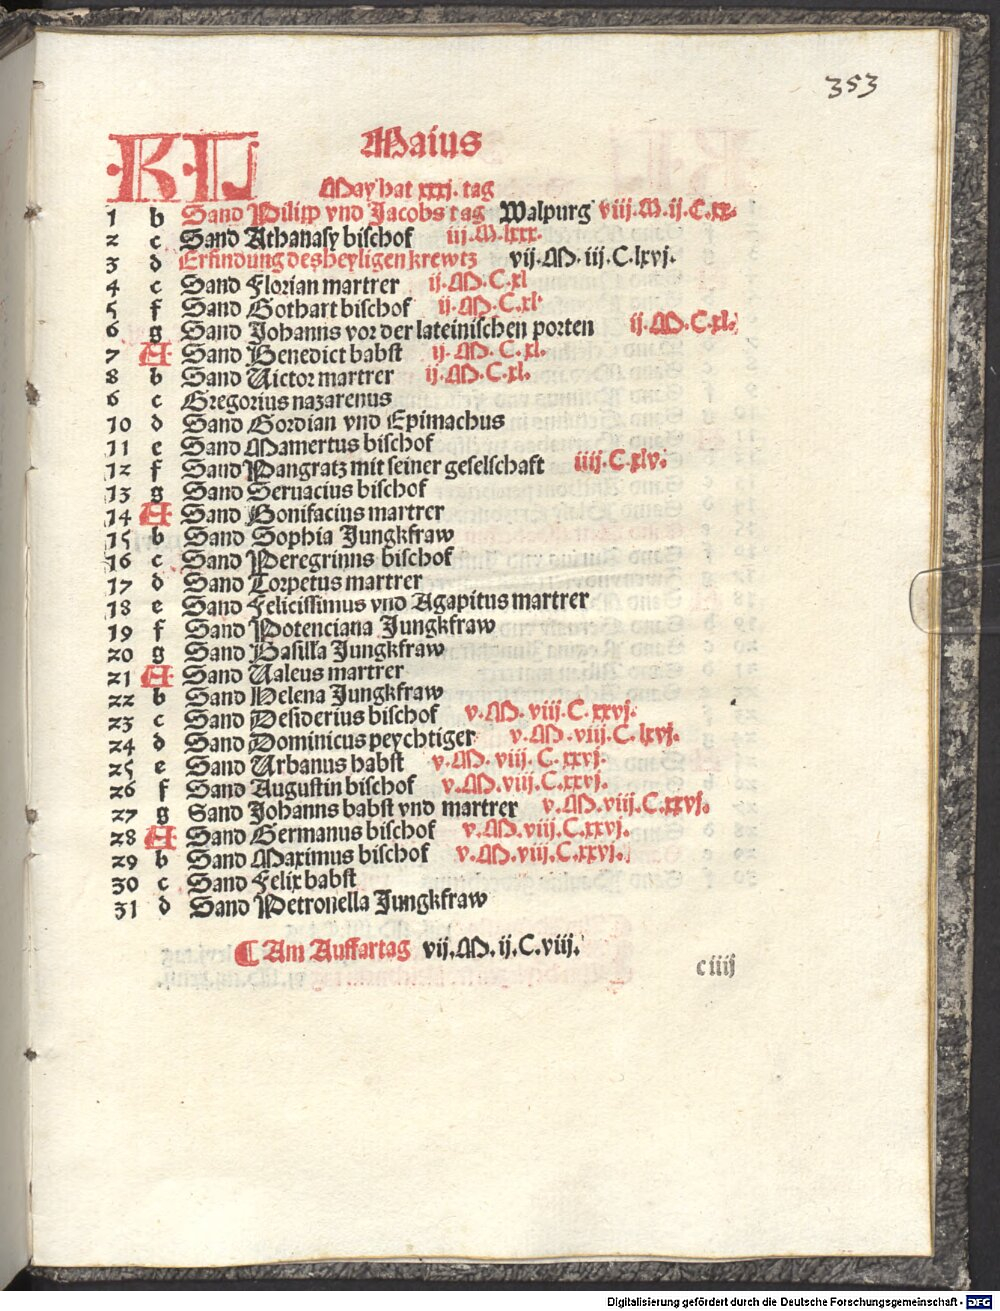 353
KL Maius
May hat xxxj. tag
1 b Sand Pilipp vnd Jacobs tag Walpurg viij.M.ij.C.xx.
2 c Sand Athanasy bischof iij.M.lxxx.
3 d Erfindung des heyligen krewtz vij.M.iij.C.lxvj.
4 e Sand Florian martrer ij.M.C.xl
5 f Sand Gothart bischof ij.M.C.xl.
6 g Sand Johannis vor der lateinischen porten ij.M.C.xl.
7 A Sand Benedict babst ij.M.C.xl.
8 b Sand Victor martrer ij.M.C.xl.
6 c Gregorius nazarenus
10 d Sand Gordian vnd Epimachus
11 e Sand Mamertus bischof
12 f Sand Pangratz mit seiner geselschaft iiij.C.xlv.
13 g Sand Seruacius bischof
14 A Sand Bonifacius martrer
15 b Sand Sophia Jungkfraw
16 c Sand Peregrinus bischof
17 d Sand Torpetus martrer
18 e Sand Felicissimus vnd Agapitus martrer
19 f Sand Potenciana Jungkfraw
20 g Sand Basilla Jungkfraw
21 A Sand Valeus martrer
22 b Sand Helena Jungkfraw
23 c Sand Desiderius bischof v.M.viij.C.xxvj.
24 d Sand Dominicus peychtiger v.M.viij.C.lxvj.
25 e Sand Urbanus babst v.M.viij.C.xxvj.
26 f Sand Augustin bischof v.M.viij.C.xxvj.
27 g Sand Johanns babst vnd martrer v.M.viij.C.xxvj.
28 A Sand Germanus bischof v.M.viij.C.xxvj.
29 b Sand Maximus bischof v.M.viij.C.xxvj.
30 c Sand Felix babst
31 d Sand Petronella Jungkfraw
¶ Am Auffartag vij.M.ij.C.viij.
ciiij
Digitalisierung gefördert durch die Deutsche Forschungsgemeinschaft - DFG